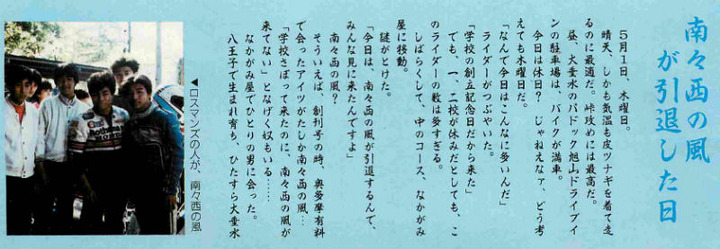 南々西の風
が引退した日
5月1日、木曜日。
晴天、しかも気温も皮ツナギを着て走
るのに最適だ。峠攻めには最高だ。
昼、大垂水のパドック旭山ドライブイ
ンの駐車場は、バイクが満車。
今日は休日？　じゃねえなァ、どう考
えても木曜日だ。
「なんで今日はこんなに多いんだ」
ライダーがつぶやいた。
「学校の創立記念日だから来た」
でも、一、二校が休みだとしても、こ
のライダーの数は多すぎる。
しばらくして、中のコース、なかがみ
屋に移動。
謎がとけた。
「今日は、南々西の風が引退するんで、
みんな見に来たんですよ」
南々西の風？
そういえば、創刊号の時、奥多摩有料
で会ったアイツがたしか南々西の風…
「学校さぼって来たのに、南々西の風が
来てない」となげく奴もいる……
なかがみ屋でひとりの男に会った。
八王子で生まれ育ち、ひたすら大垂水
◀ロスマンズの人が、南々西の風